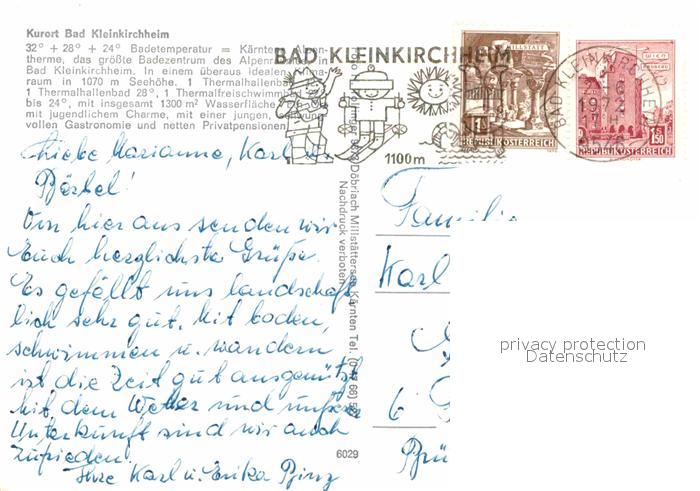 Kurort Bad Kleinkirchheim
32° + 28° + 24° Badetemperatur = Kärntens Alpen-
therme, das größte Badezentrum des Alpenraumes in
Bad Kleinkirchheim. In einem überaus idealen Klima-
raum in 1070 m Seehöhe. 1 Thermalhallenbad
1 Thermalhallenbad 28°, 1 Thermalfreischwimmbad
bis 24°, mit insgesamt 1300 m² Wasserfläche
mit jugendlichem Charme, mit einer jungen, schwung-
vollen Gastronomie und netten Privatpensionen.
BAD KLEINKIRCHHEIM
1100 m
MILLSTATT
REPUBLIK ÖSTERREICH
WIEN
1.50
REPUBLIK ÖSTERREICH
BAD KLEINKIRCHHEIM
1972
Döbriach Millstättersee, Kärnten Tel.
Nachdruck verboten
6029
Liebe Marianne, Karl u.
Bärbel!
Von hier aus senden wir
Euch herzlichste Grüße.
Es gefällt uns landschaft-
lich sehr gut. Mit baden,
schwimmen u. wandern
ist die Zeit gut ausgenützt.
Mit dem Wetter und unserer
Unterkunft sind wir auch
zufrieden.
Ihre Karl u. Erika
Familie
Karl
6
privacy protection
Datenschutz